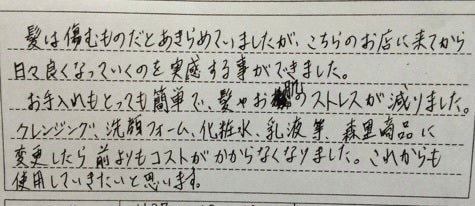 髪は傷むものだとあきらめていましたが、こちらのお店に来てから
日々良くなっていくのを実感する事ができました。
お手入れもとっても簡単で、髪やお肌のストレスが減りました。
クレンジング、洗顔フォーム、化粧水、乳液等、森里商品に
変更したら前よりもコストがかからなくなりました。これからも
使用していきたいと思います。